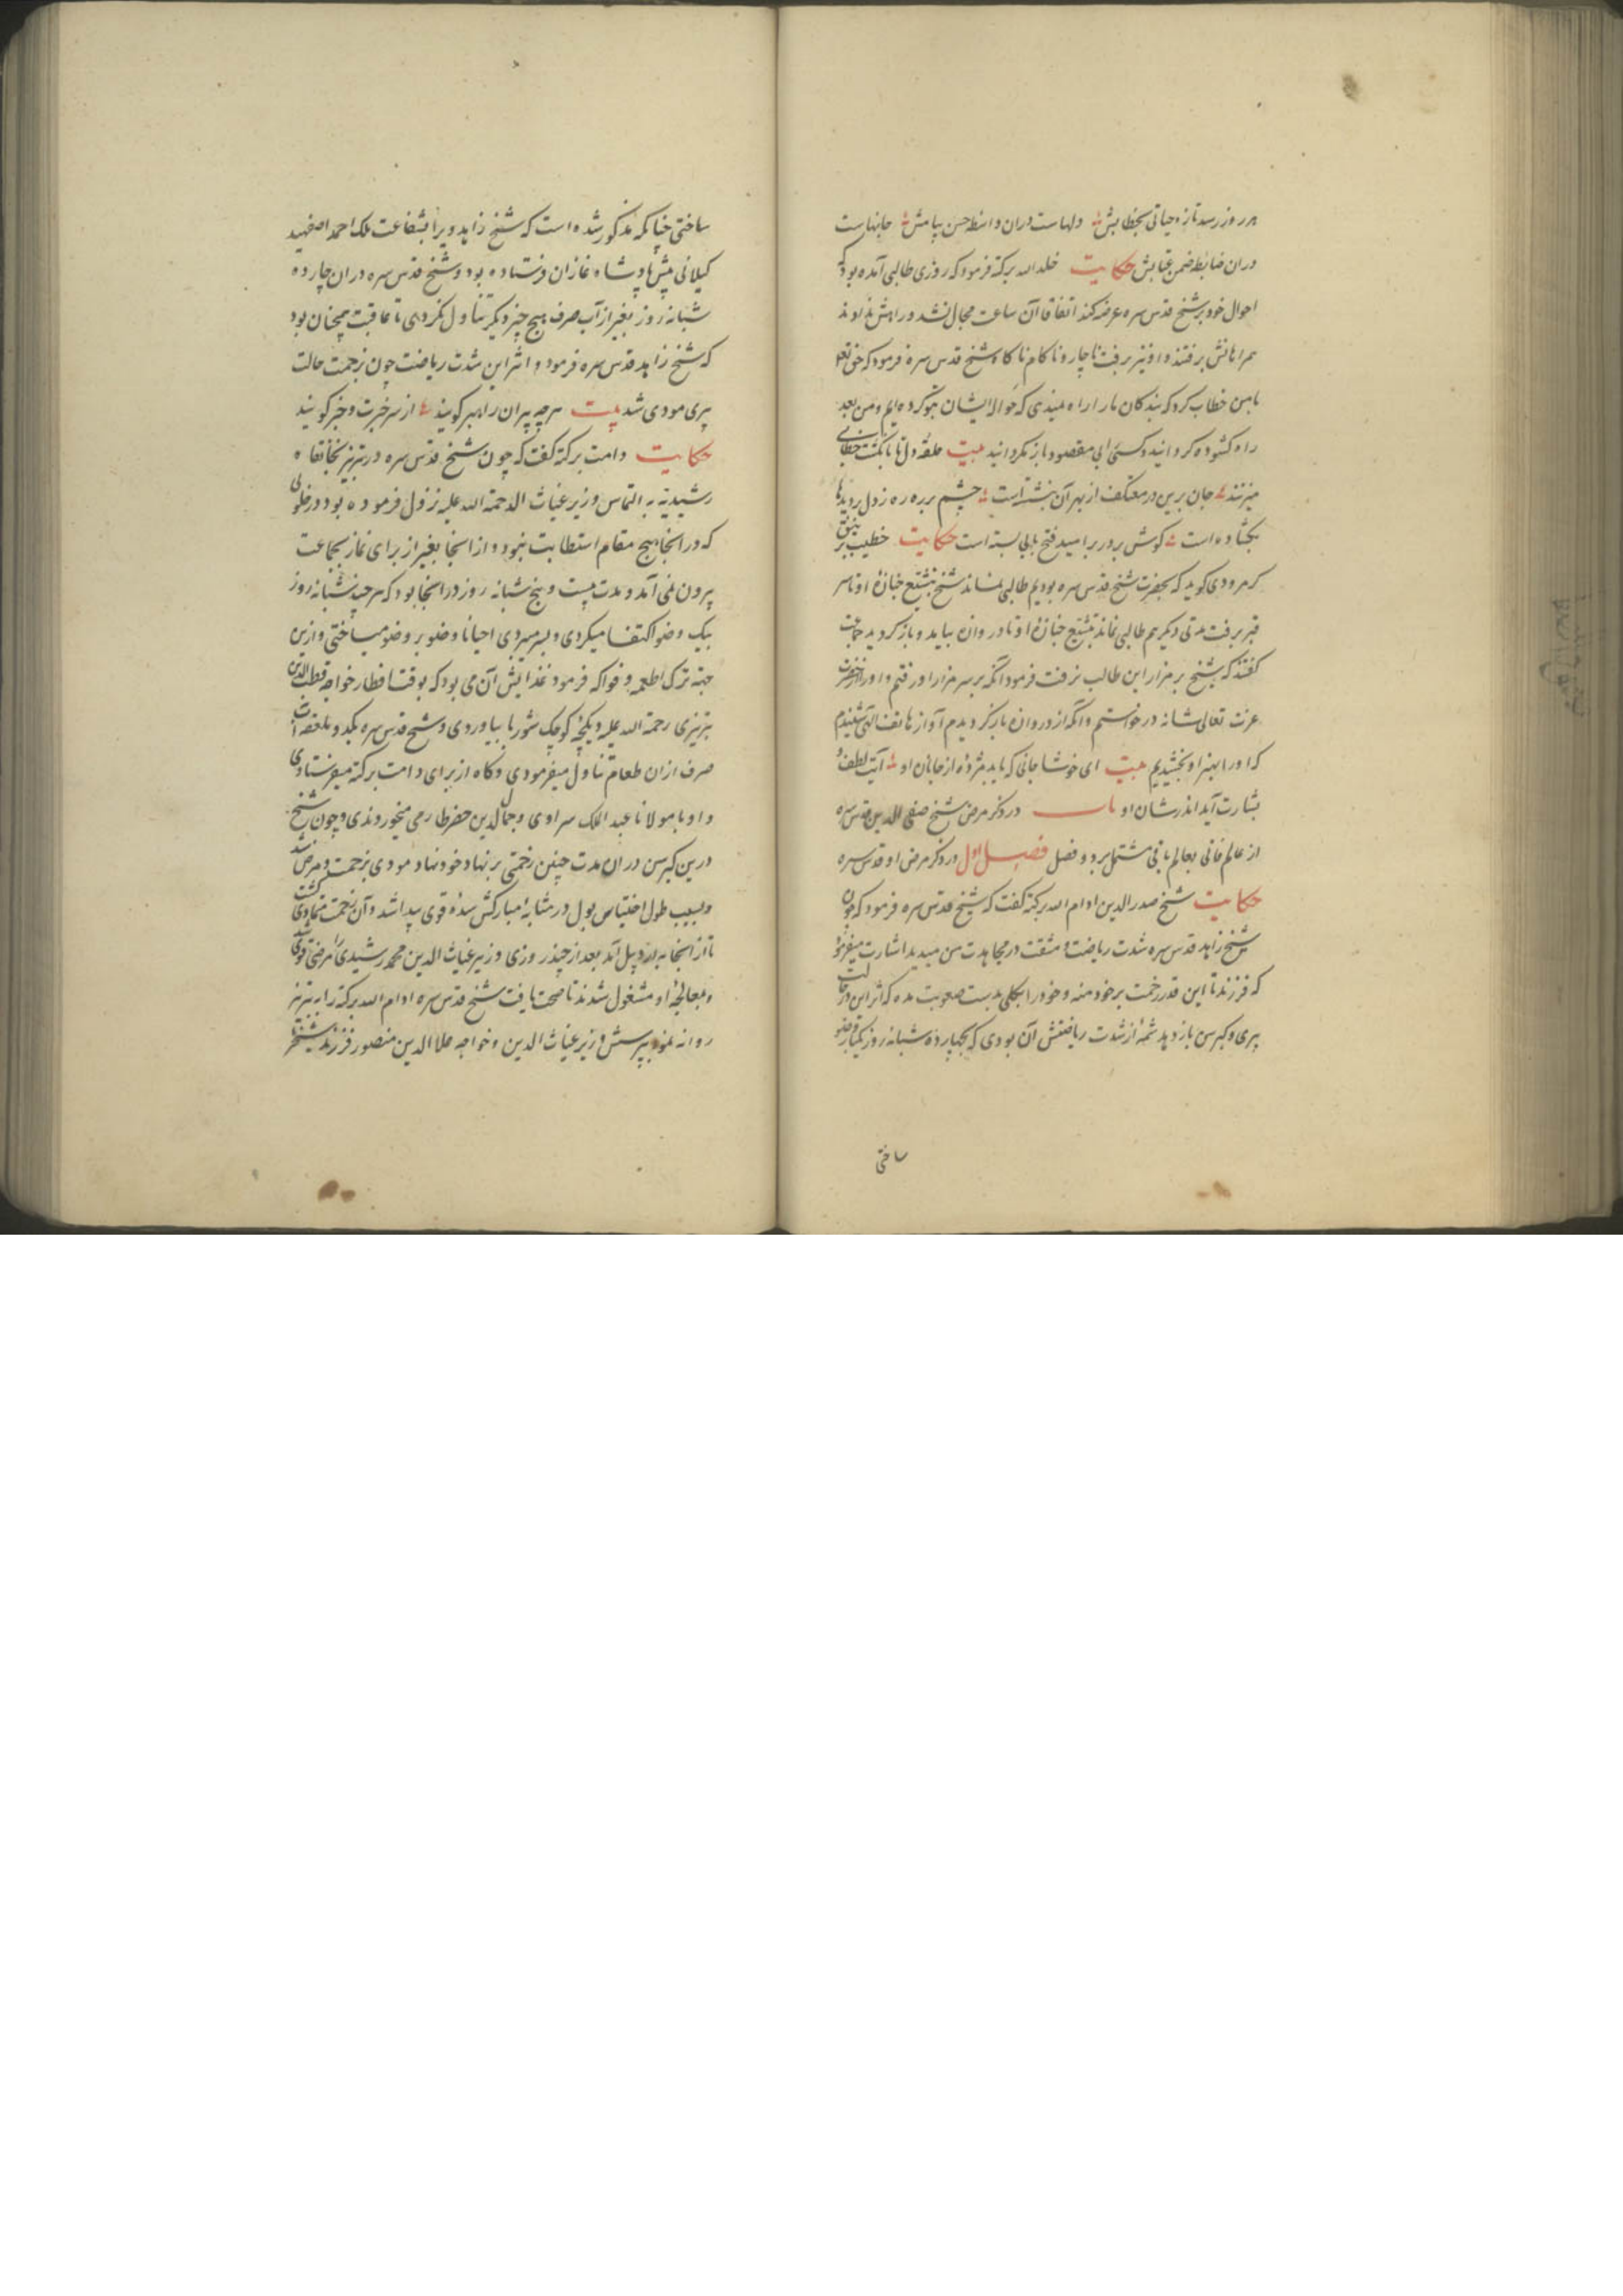 هر روز رسد تازه حیاتی بخطابش دلهاست دران واسطه حسن پیامش جانهاست
دران ضابطه ضمن عتابش حکایت خلد الله برکته فرمود که روزی طالبی آمده بود که
احوال خود بر شیخ قدس سره عرضه کند اتفاقا آن ساعت مجال نشد و راهش ندادند
همراهانش برفتند و او نیز برفت ناچار و ناکام ناگاه شیخ قدس سره فرمود که حق تعالی
بامن خطاب کرد که بندگان مارا راه میدی که حواله ایشان بتو کرده ایم و من بعد
راه گشوده گردانید و کسی را بی مقصود باز نگردانید بیت حلقه دل تا بانگشت خطابی
میزنند جان برین در معتکف از بهر آن بنشسته است چشم بر ره ره ز دل رویدها
بگشاده است گوش بر در بر امید فتح بابی بسته است حکایت خطیب
کرمرودی گوید که بحضرت شیخ قدس سره بودیم طالبی نماند شیخ بتشییع جنازه او تا سر
قبر برفت مدتی دیگر هم طالبی نماند بتشییع جنازه او تا دروازه بیامد و باز گردید جماعت
گفتند که شیخ بر مزار این طالب نرفت فرمود آنگه بر سر مزار او رفتم و او را از حضرت
عزت تعالی شانه درخواستم و آنگه از دروازه باز گردیدم آواز هاتف الهی شنیدم
که او را بهنر او بخشیدیم بیت ای خوشا جانی که یابد مژده از جانان او آیت لطف و
بشارت آید اندر شان او باب در ذکر مرض شیخ صفی الدین قدس سره
از عالم فانی بعالم باقی مشتمل بر دو فصل فصل اول در ذکر مرض او قدس سره
حکایت شیخ صدرالدین ادام الله برکته گفت که شیخ قدس سره فرمود که چون
شیخ زاهد قدس سره شدت ریاضت و مشقت در مجاهدت من میدید اشارت میفرمود
که فرزند تا این قدر زحمت بر خود منه و خود را بکلی بدست صعوبت مده که اثر این در حالت
پیری و کبر سن باز دهد شمه از شدت ریاضتش آن بودی که بچهارده شبانه روز یکبار وضو
ساختی
ساختی چنانکه مذکور شده است که شیخ زاهد ویرا بشفاعت ملک احمد اصفهبد
گیلانی پیش پادشاه غازان فرستاده بود و شیخ قدس سره دران چارده
شبانه روز بغیر از آب صرف هیچ چیز دیگر تناول نکردی تا عاقبت همچنان بود
که شیخ زاهد قدس سره فرمود و اثر این شدت ریاضت چون بزحمت حالت
پیری مودی شد بیت هرچه پیران راهبر گویند از سر خبرت و خبر گویند
حکایت دامت برکته گفت که چون شیخ قدس سره در تبریز بخانقاه
رشیدیه به التماس وزیر غیاث الد رحمة الله علیه نزول فرموده بود در خلوتی
که در آنجا هیچ مقام استطابت نبود و از آنجا بغیر از برای نماز بجماعت
بیرون نمی آمد و مدت بیست و پنج شبانه روز در آنجا بود که هر چند شبانه روز
بیک وضو اکتفا میکردی و بسر میبردی احیانا وضو بر وضو میساختی و ازین
جهة ترک اطعمه و فواکه فرمود غذایش آن می بود که بوقت افطار خواجه قطب الدین
تبریزی رحمة الله علیه دیکچه کوچک شوربا بیاوردی و شیخ قدس سره یک دو ملعقه آب
صرف ازان طعام تناول میفرمودی و گاه از برای دامت برکته میفرستادی
و او با مولانا عبد الملک سراوی و جمال الدین حفرطارمی میخوردندی و چون شیخ
درین کبر سن دران مدت چنین زحمتی بر نهاد خود نهاد مودی بزحمت و مرض شد
و بسبب طول احتباس بول در مثانه مبارکش سده قوی پیدا شد و آن زحمت متمادی گشت
تا از آنجا به اردبیل آمد بعد از چند روزی وزیر غیاث الدین محمد رشیدی را مرضی قوی
و بمعالجه او مشغول شدند تا صحت یافت شیخ قدس سره ادام الله برکته را به تبریز
روانه نمود بپرسش وزیر غیاث الدین و خواجه علاالدین منصور فرزند شیخ